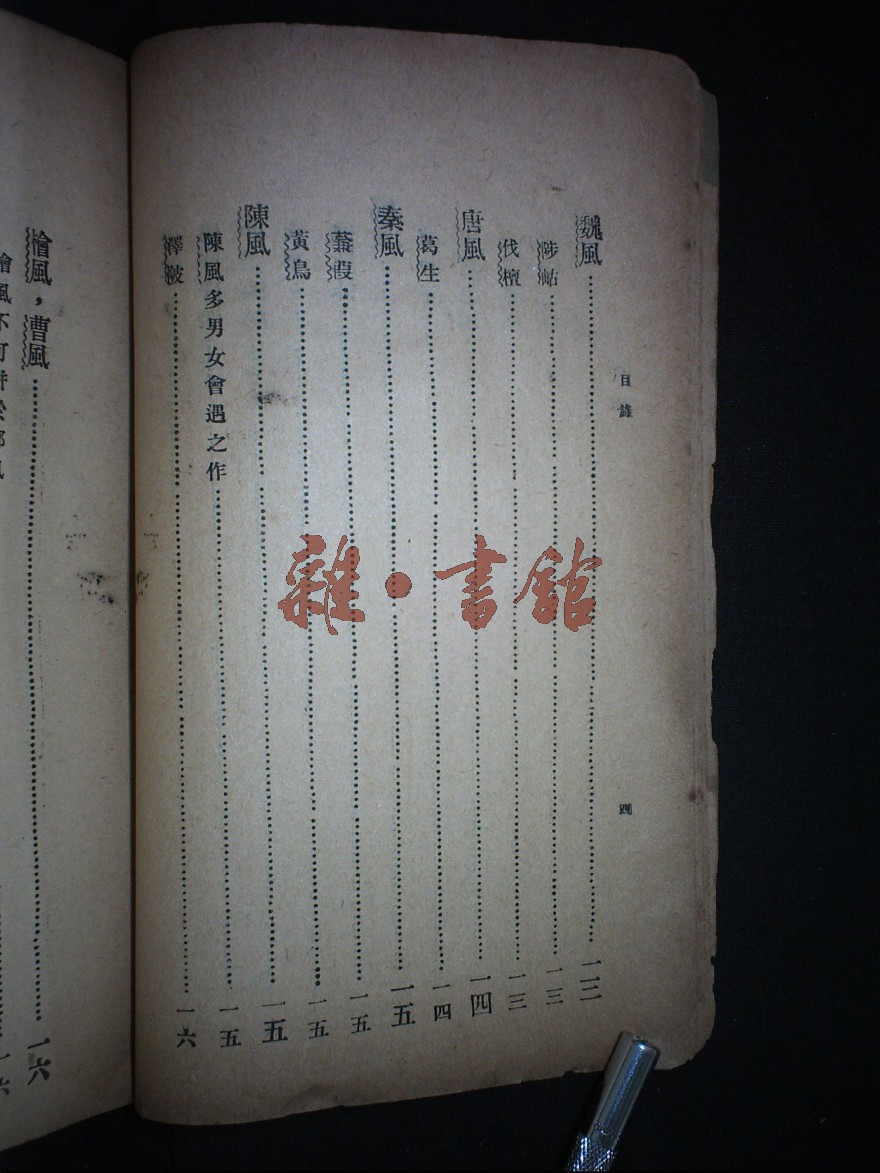 目錄 四
魏風 一三
陟岵 一三
伐檀 一三
唐風 一四
葛生 一四
秦風 一五
蒹葭 一五
黃鳥 一五
陳風 一五
陳風多男女會遇之作 一五
澤陂 一六
檜風，曹風 一六
雜·書館